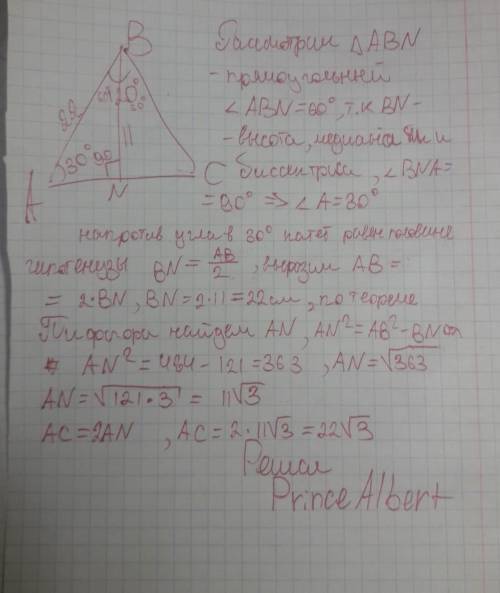 B
Рассмотрим △ABN
- прямоугольный
∠ABN=60°, т.к BN -
- высота, медиана и
биссектриса, ∠BNA=
= 90° => ∠A=30°
22
120°
11
30°
90°
A
N
C
напротив угла в 30° катет равен половине
гипотенузы BN = AB/2, выразим AB =
= 2·BN, BN=2·11=22см, по теореме
Пифагора найдем AN, AN²=AB²-BN²
AN²=484-121=363, AN=√363
AN=√121·3 = 11√3
AC=2AN, AC=2·11√3=22√3
Решал
Prince Albert